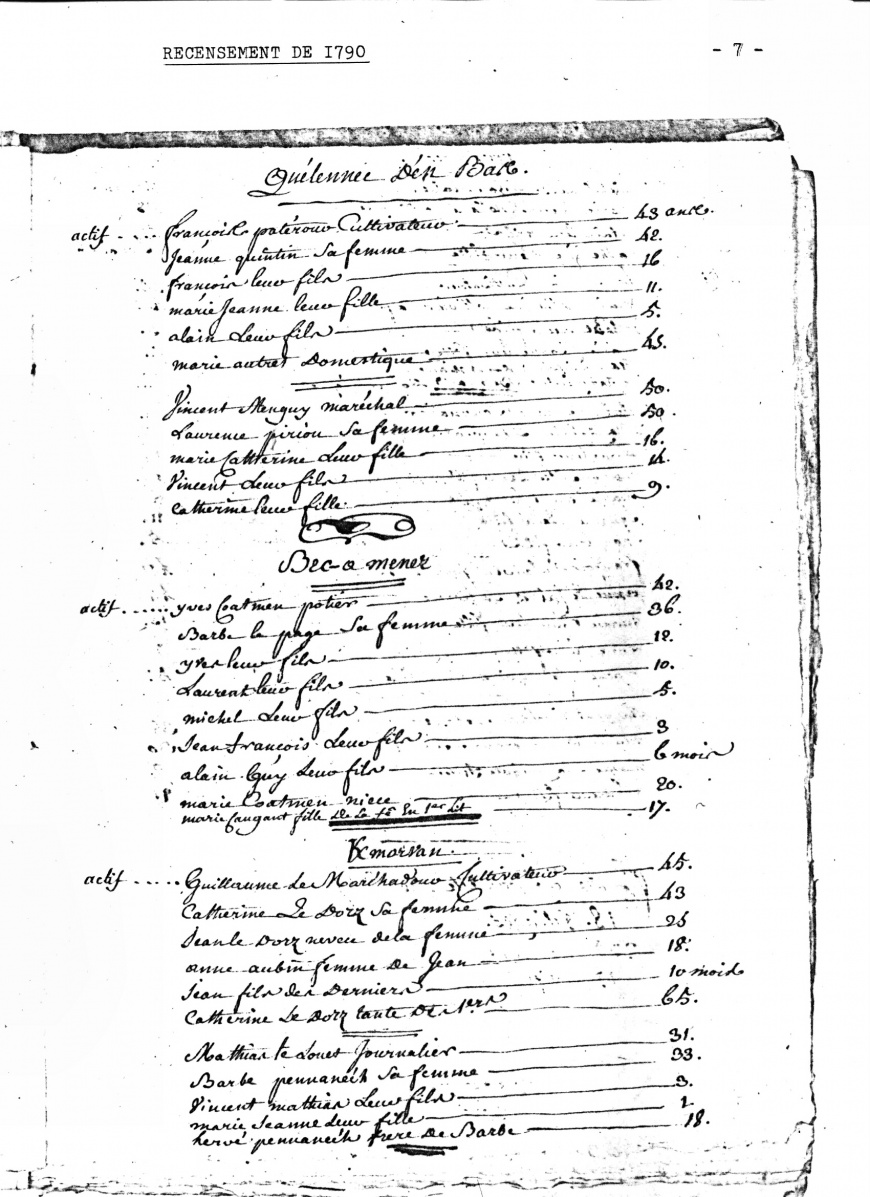 RECENSEMENT DE 1790 - 7 -
Quélennec Dén Bas.
actif .... françois patérour Cultivateur 43 ans.
Jeanne quintin Sa femme 42.
françois leur fils 16
marie Jeanne leur fille 11.
alain Leur fils 5.
marie autret Domestique 45.
Vincent Menguy maréchal 50.
Laurence piriou Sa femme 50.
marie Catherine Leur fille 16.
Vincent Leur fils 14.
Catherine leur fille 9.
Bec-a menez
actif ...... yves Coatmen potier 42.
Barbe le page Sa femme 36.
yves leur fils 12.
Laurent leur fils 10.
michel Leur fils 5.
Jean françois Leur fils 3
alain Guy Leur fils 6 mois
marie Coatmen niece 20.
marie Caugant fille De La fe En 1er Lit 17.
Kmorvan.
actif ..... Guillaume Le Marchadour Cultivateur 45.
Catherine Le Dorz Sa femme 43
Jean le Dorz neveu de la femme 25
anne aubin femme De Jean 18.
Jean fils des Derniers 10 mois
Catherine Le Dorz tante Des 1ers 65.
Mathias le Louet Journalier 31.
Barbe pennaneich Sa femme 33.
Vincent mathias Leur fils 3.
marie Jeanne Leur fille 1.
hervé pennaneich frere De Barbe 18.